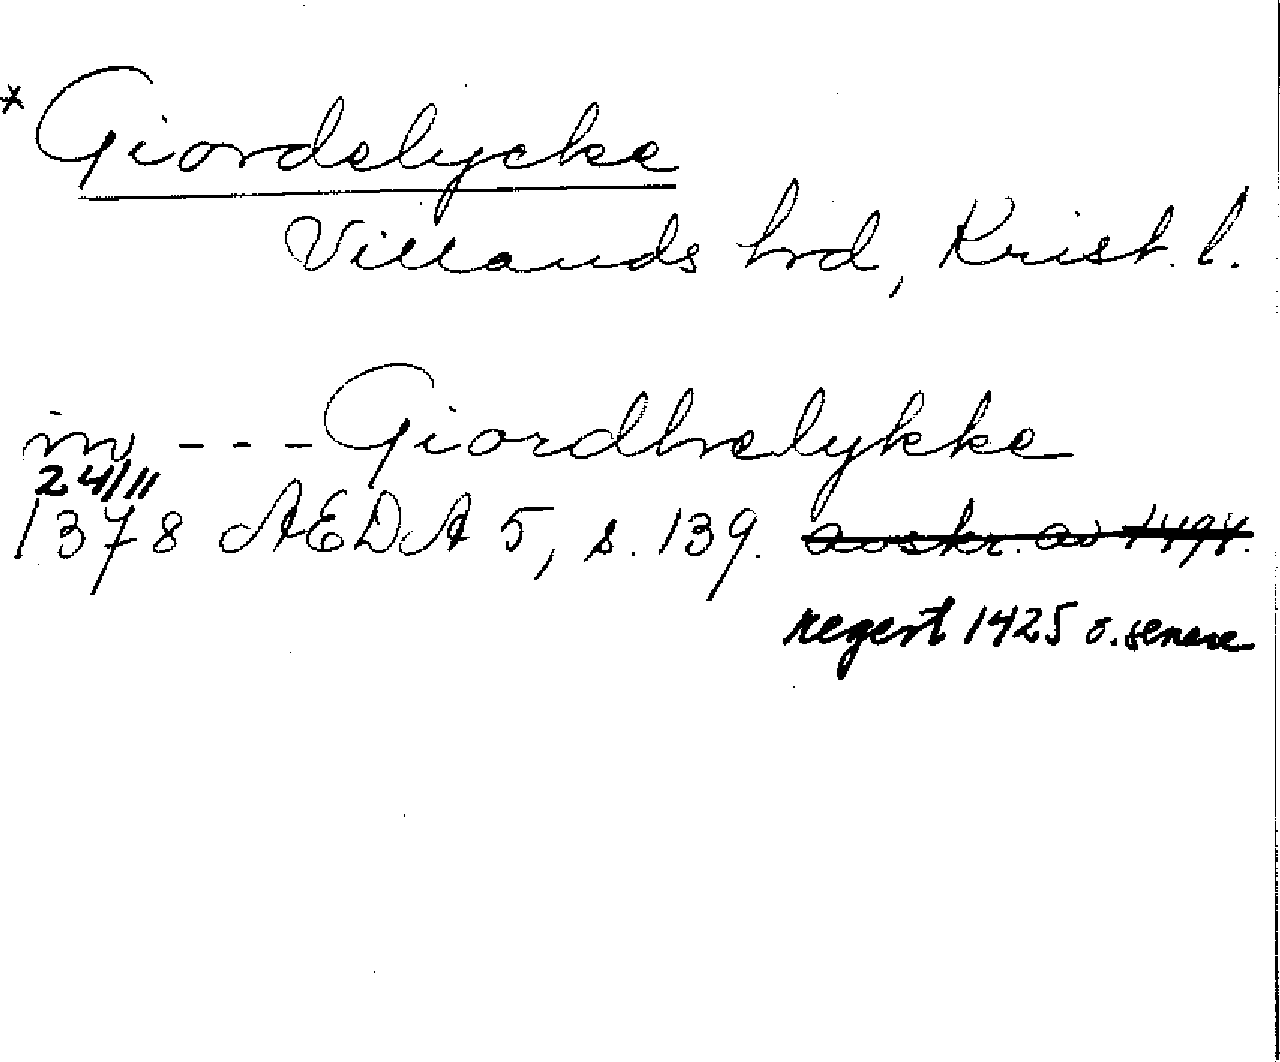 * Giordelycke
Villands hrd, Krist. l.
in - - - Giordhelykke
24/11
1378 AEDA 5, s. 139. avskr. av 1494.
regest 1425 o. senare